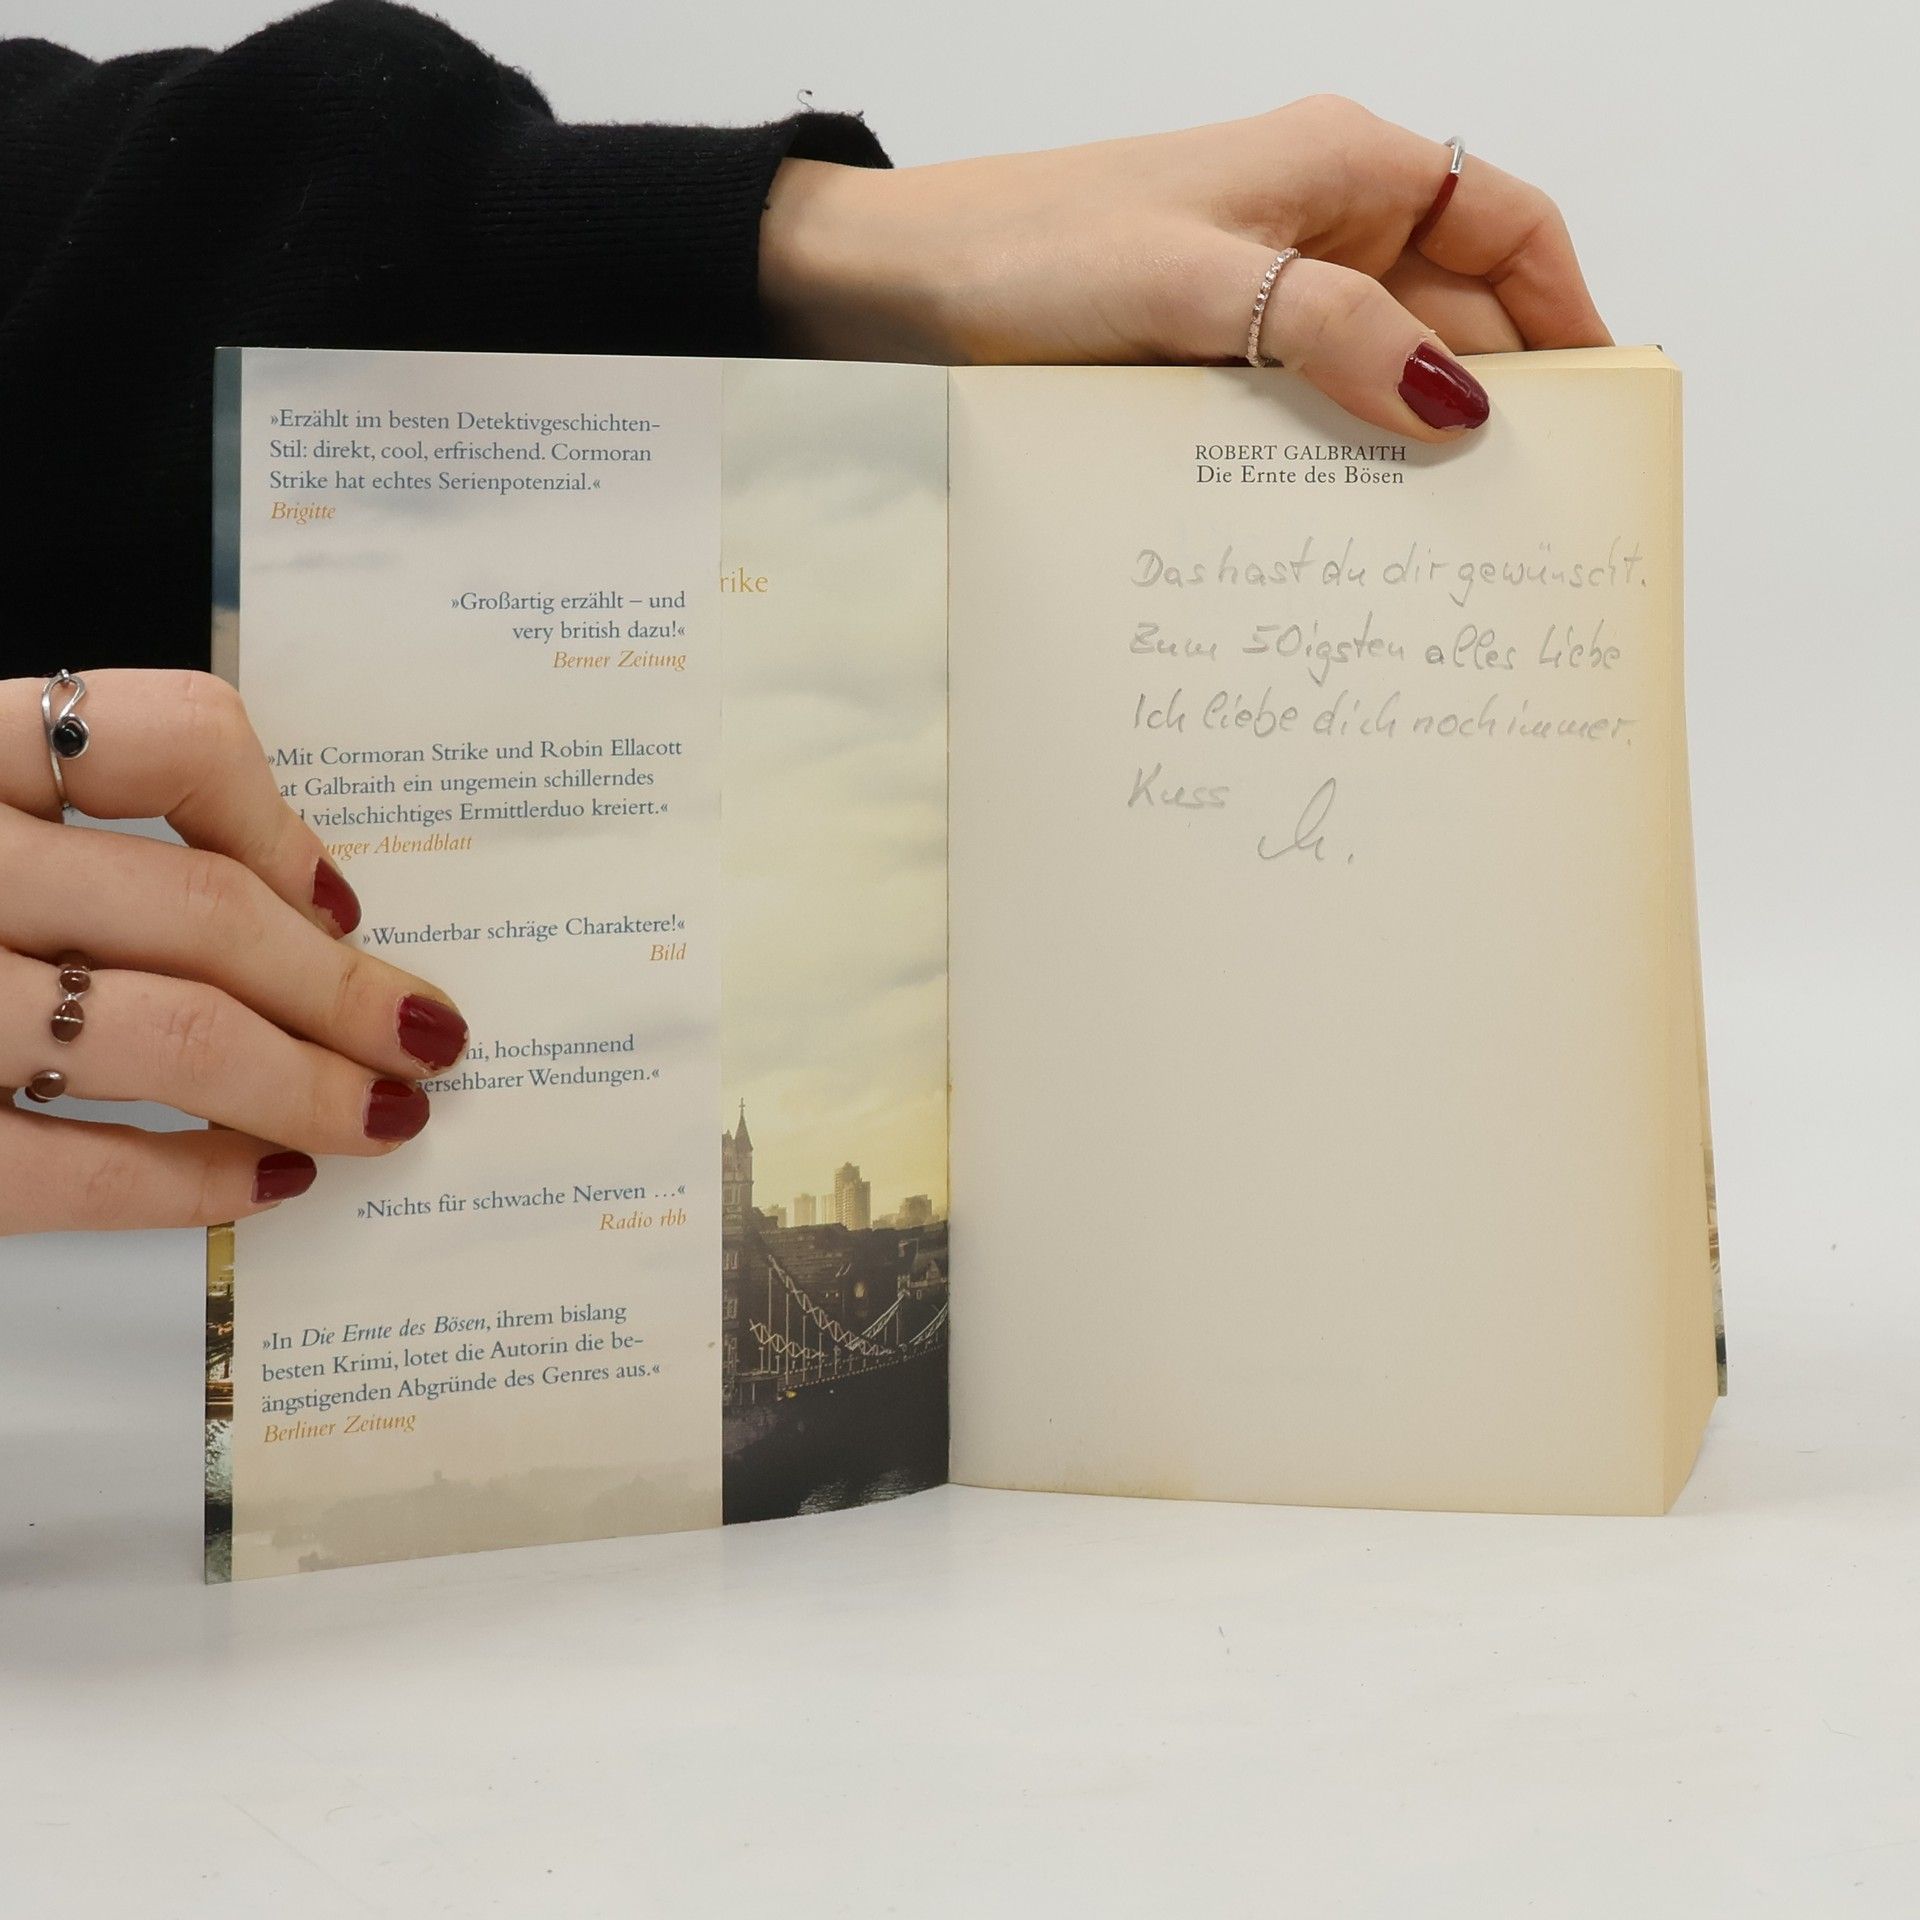 »Erzählt im besten Detektivgeschichten-
Stil: direkt, cool, erfrischend. Cormoran
Strike hat echtes Serienpotenzial.«
Brigitte
»Großartig erzählt – und
very british dazu!«
Berner Zeitung
»Mit Cormoran Strike und Robin Ellacott
at Galbraith ein ungemein schillerndes
vielschichtiges Ermittlerduo kreiert.«
urger Abendblatt
»Wunderbar schräge Charaktere!«
Bild
hochspannend
ersehbarer Wendungen.«
»Nichts für schwache Nerven ...«
Radio rbb
»In Die Ernte des Bösen, ihrem bislang
besten Krimi, lotet die Autorin die be-
ängstigenden Abgründe des Genres aus.«
Berliner Zeitung
rike
ROBERT GALBRAITH
Die Ernte des Bösen
Das hast du dir gewünscht.
Zum 50igsten alles Liebe
Ich liebe dich noch immer.
Kuss